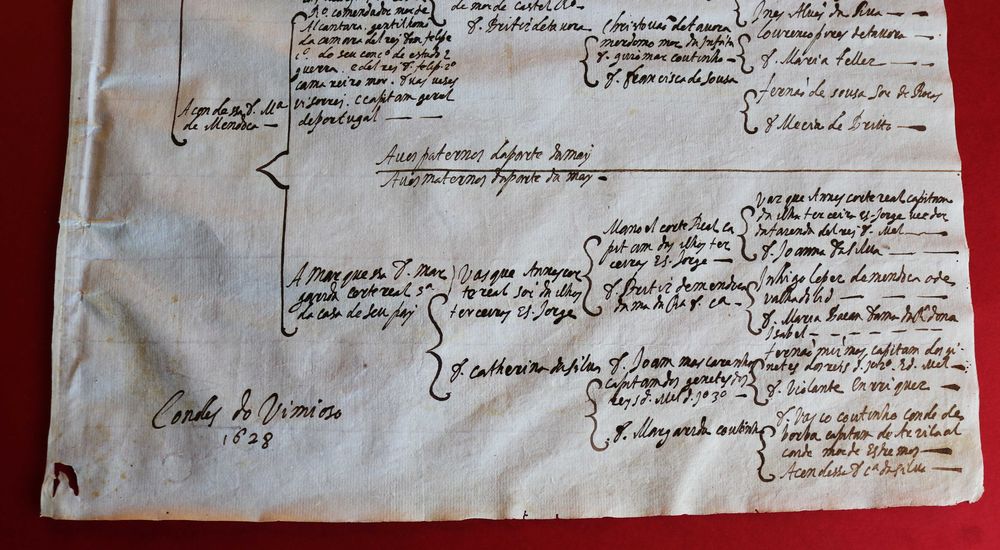 Rº. comendador mor de
Alcantara, gentil homẽ
da camara del rej don felipe
cº. do seu concº de estado e
guerra. e del rej d. felip. 2º
camareiro mor. d uas uezes
visorrei. e capitam geral
de portugal
de mor de castel Rº.
d. Britiz de tauora
Christouaõ de tauora
mordomo mor da infãta
d. guiomar coutinho
d. francisca de sousa
Ines Alvẽs da
Lourenco pires de tauora
d. Maria Tellez
fernaõ de sousa Sor de
d. Mecia de Brito
A condessa d. Mª
de Mendoça
Avos paternos da parte da maj
Avos maternos da parte da may
A marquesa d. mar
garida corte real 3ª
da casa de seu paj
Vasque Annes cor
te real Sor da ilhas
terceiras E S. Jorge
d. catherina da silua
Manoel corte Real ca
pitam das ilhas ter
ceiras E S. Jorge
d. Britiz de mendoça
dama da Rª d. cª.
d. Joam mascarenhas
capitam dos genetes dos
reys d. Mel d. joº 3º
d. Margarida coutinho
Vazque Annes corte real capitam
da ilha terceira E S. Jorge veedor
da fazenda del rej d. Mel
d. Joanna da silua
Inhigo Lopez de mendoca o de
Valhadolid
d. Maria Bacan dama da Rª dona
Isabel
fernaõ miz mas. capitam dos gi
netes dos reis d. joº 2º. E d. Mel
d. Violante Enrriquez
d. Vasco coutinho conde de
borba capitam de Arzila al
caide mor de Estremos
A condessa d. cª da silua
Condes do Vimioso
1628